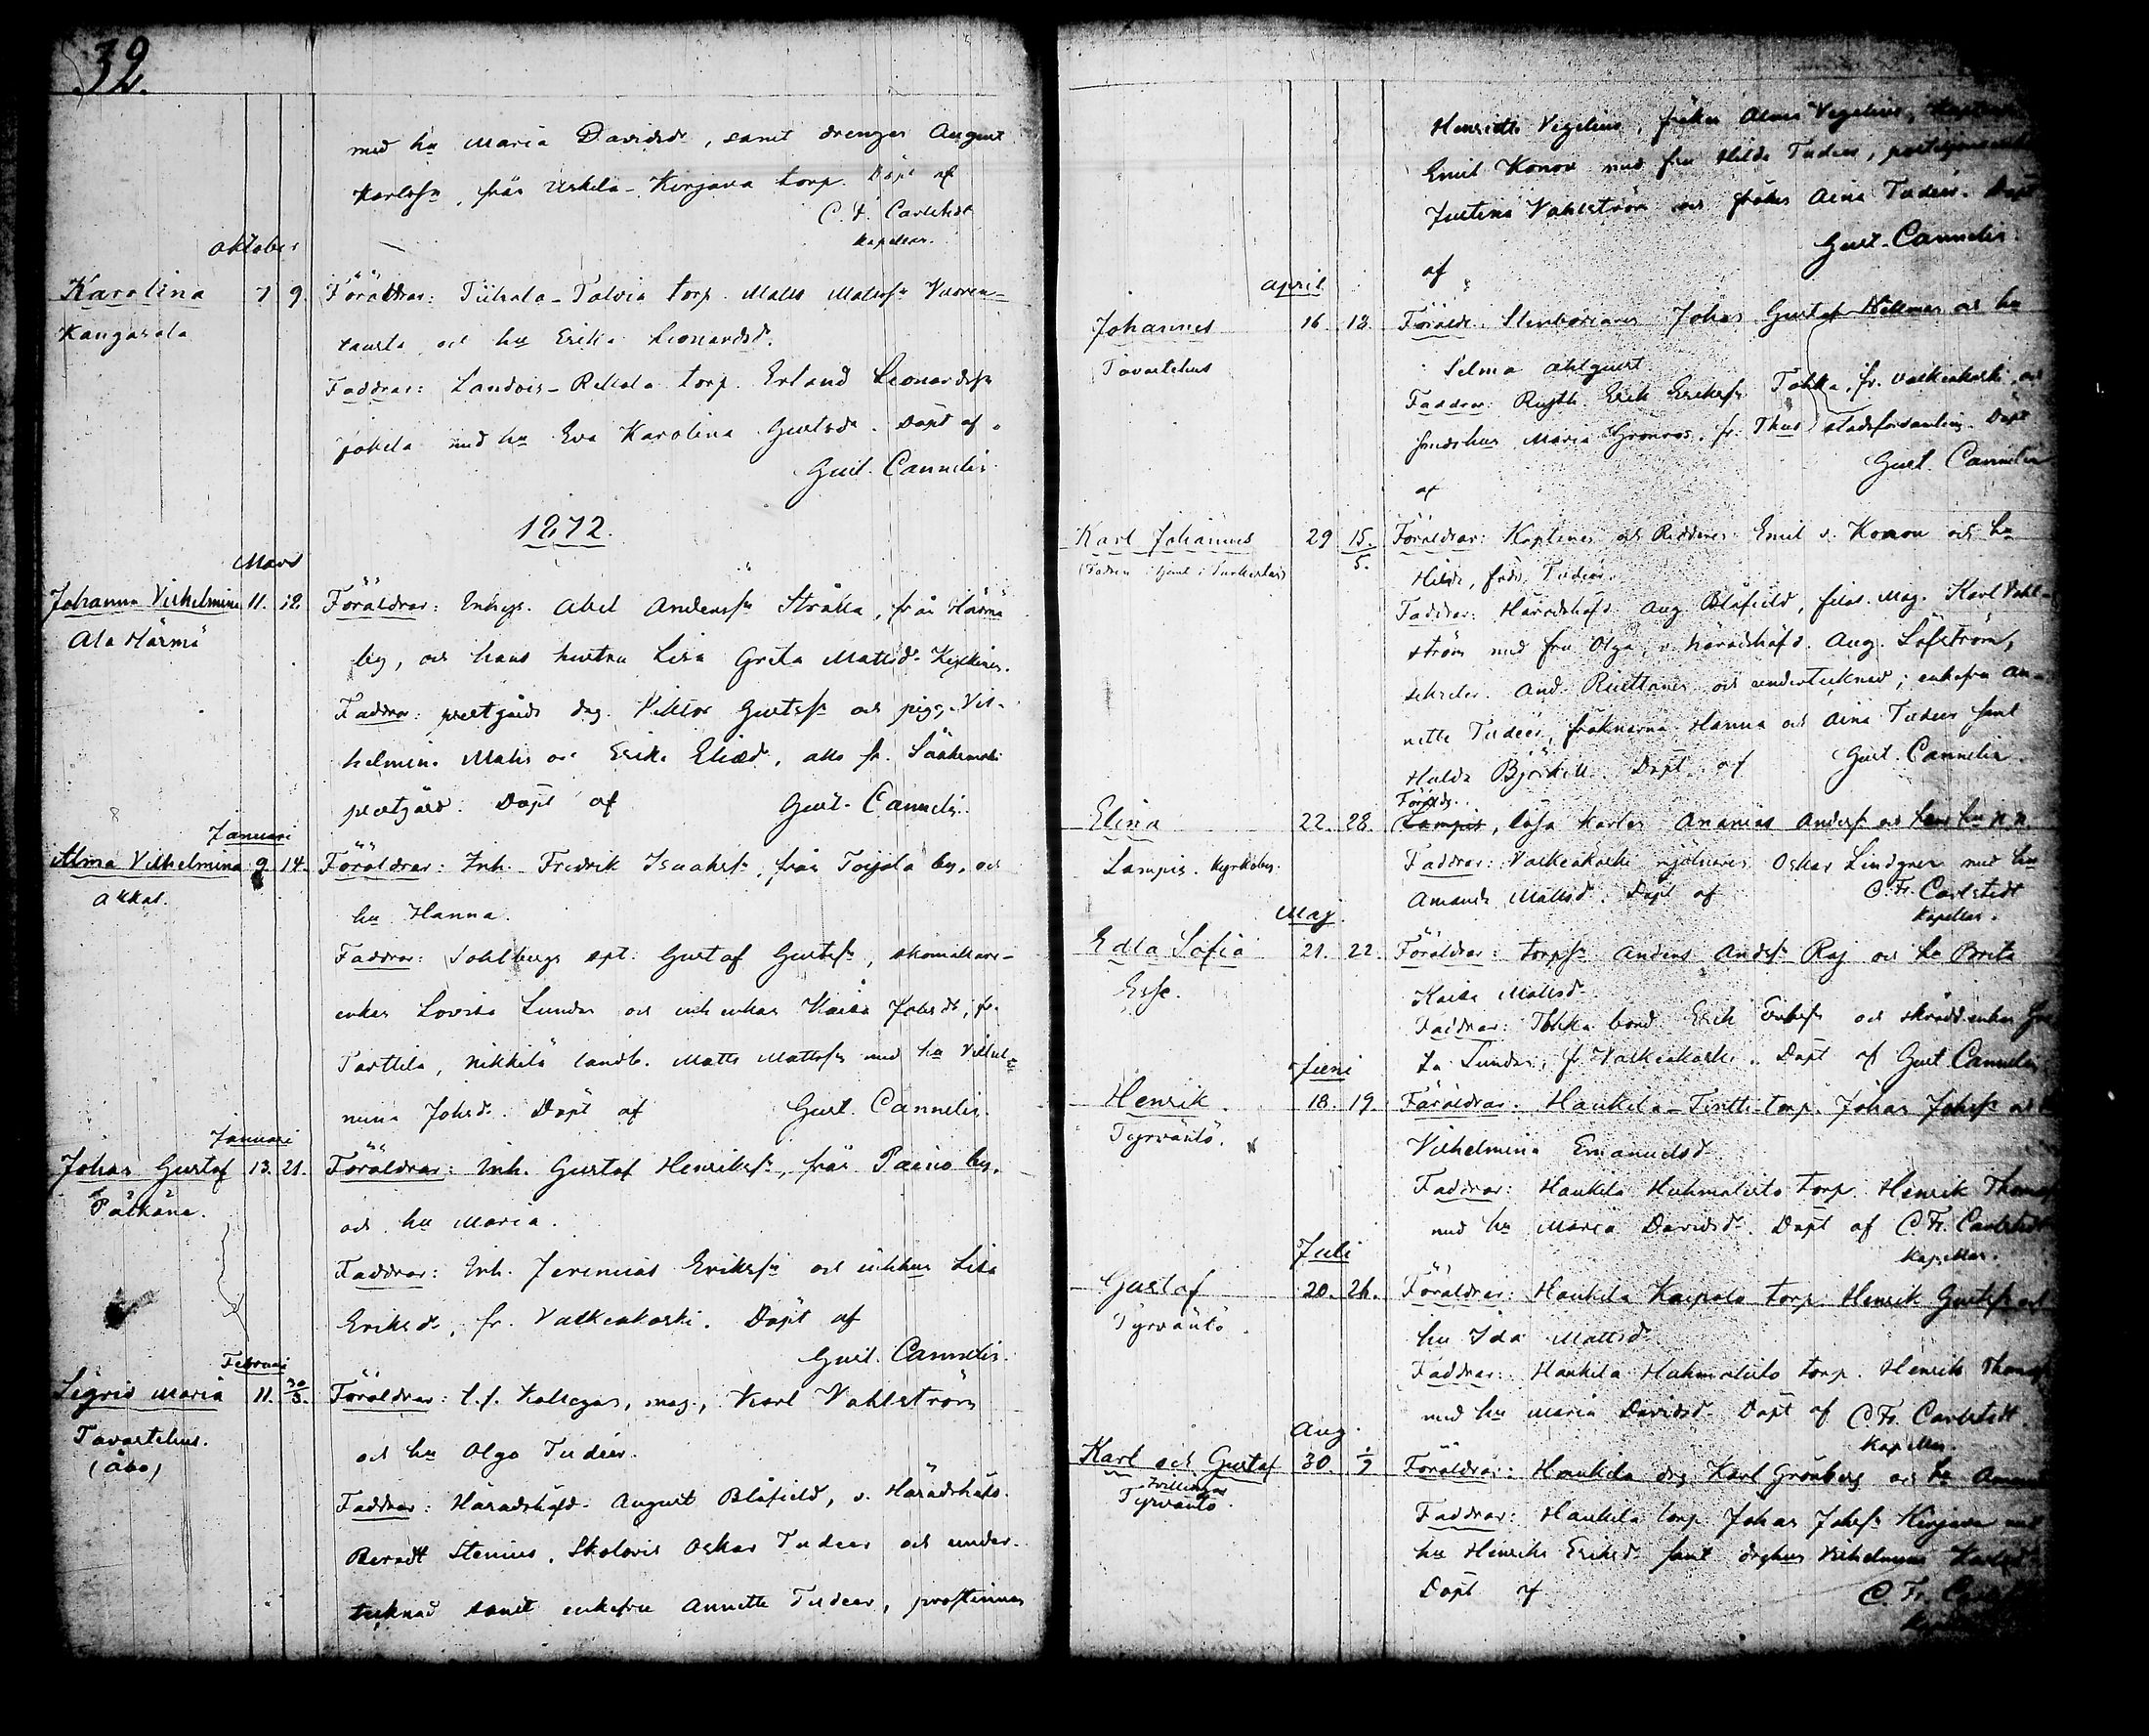 32.
med hu Maria Davidsdr, samt drengen August
Karlsson, från Uskila-Kirjava torp. Döpt af
C. F. Carlstedt
Kapellan.
Oktober
Karolina 7 9. Föräldrar: Tiihala-Talvia torp. Matts Mattsson Vuoren-
Kangasala
tausta och hu Erika Leonardsd.
Faddrar: Landvis-Rekola torp. Erland Leonardsson
jokela med hu Eva Karolina Gustsdr. Döpt af
Gust. Cannelin.
1872.
Mars
Johanna Vilhelmina 11. 12. Föräldrar: Inhys. Abel Andersson Stråka, från Härmä
Ala Härmä
by, och hans hustru Lisa Greta Mattsdr
Faddrar: prestgårds drg. Viktor Gustsson och pig. Vil-
helmina Matts och Erika Eliædr, alla fr. Sääksmäki
prestgård. Döpt af Gust. Cannelin.
Januari
Alma Vilhelmina 9. 14. Föräldrar: Inh. Fredrik Isaaksson, från Toijala by, och
Akkas.
hu Hanna.
Faddrar: Sohlbergs spt. Gustaf Gustsson, skomakare-
enkan Lovisa Lundan och inh enkan Kaisa Johsdr, fr.
Tarttila, Nikkilä landb. Matts Mattsson med hu Vilhel-
mina Johsdr. Döpt af Gust. Cannelin.
Januari
Johan Gustaf 13. 21. Föräldrar: Inh. Gustaf Henriksson, från Paino by,
Pälkäne.
och hu Maria.
Faddrar: Inh. Jeremias Eriksson och inhhus Lisa
Eriksdr, fr. Valkeakoski. Döpt af
Gust. Cannelin.
Februari
Sigrid Maria 11. 30/3. Föräldrar: t.f. Kollegan, mag., Karl Vahlström
Tavastehus.
(Åbo)
och hu Olga Tudeer.
Faddrar: Häradshöfd. August Blåfield, v. Häradshöfd.
Berndt Stenius, Skolevis Oskar Tudeer och under-
tecknad samt enkefru Annette Tudeer, prostinnan
Henriette Vegelius, fröken Alma Vegelius,
Emil Konow med fru Hilda Tudeer,
Justina Vahlström och fröken Aina Tudeer. Döpt
af Gust. Cannelin.
April
Johannes 16. 18. Föräldr. Stenborraren Johan Gustaf Hellman och hu
Tavastehus
Selma Ahlquist
Faddrar: Rusth. Erik Eriksson Tohka, fr. Valkeakoski och
Maria Grönroos, fr. Thus stadsförsamling. Döpt
af Gust. Cannelin
Karl Johannes 29 15./5. Föräldrar: Kaptenen och Riddaren Emil v. Konow och hu
(Fadren i tjenst i Turkestan)
Hilda, född Tudeer.
Faddrar: Häradshöfd. Aug. Blåfield, filos. Mag. Karl Vahl-
ström med fru Olga, v. häradshöfd. Aug. Löfström,
sekreter. And. Ruuttanen och undertecknad; enkefru An-
nette Tudeer, fröknarna Hanna och Aina Tudeer samt
Hulda Björkell. Döpt af Gust. Cannelin.
Föräldr.
Elina 22. 28. Lampis, lösa karlen Ananias Andersson och hans hu N.N.
Lampis. Kyrkoby.
Faddrar: Valkeakoski mjölnaren Oskar Lindgren med hu
Amanda Mattsd. Döpt af C. Fr. Carlstedt
Kapellan.
Maj.
Edla Sofia 21. 22. Föräldrar: torps. Anders Andsson Raj och hu Brita
Esse.
Kaisa Mattsd.
Faddrar: Tohka bond. Erik Eriksson och skräddenkan
Lundan, fr. Valkeakoski. Döpt af Gust Cannelin
Juni
Henrik. 18. 19. Föräldrar. Haukila-Tintti torp. Johan Johsson och hu
Tyrväntö.
Vilhelmina Emanuelsd.
Faddrar: Haukila Huhmalisto torp. Henrik Thomass
med hu Maria Davidsd. Döpt af C. Fr. Carlstedt
Kapellan.
Juli
Gustaf 20. 26. Föräldrar: Haukila Kaipola torp. Henrik Gustsson och
Tyrväntö.
hu Ida Mattsd.
Faddrar: Haukila Huhmalisto torp. Henrik Thomass
med hu Maria Davidsd. Döpt af C. Fr. Carlstedt.
Kapellan.
Aug.
Karl och Gustaf 30. 1/9 Föräldrar: Haukila drg. Karl Grönberg och hu
Tvillingar
Tyrväntö.
Faddrar: Haukila torp. Johan Johsson Kirjava med
hu Henrika Eriksd. samt drghus Vilhelmina Karlsd.
Döpt af C. Fr.